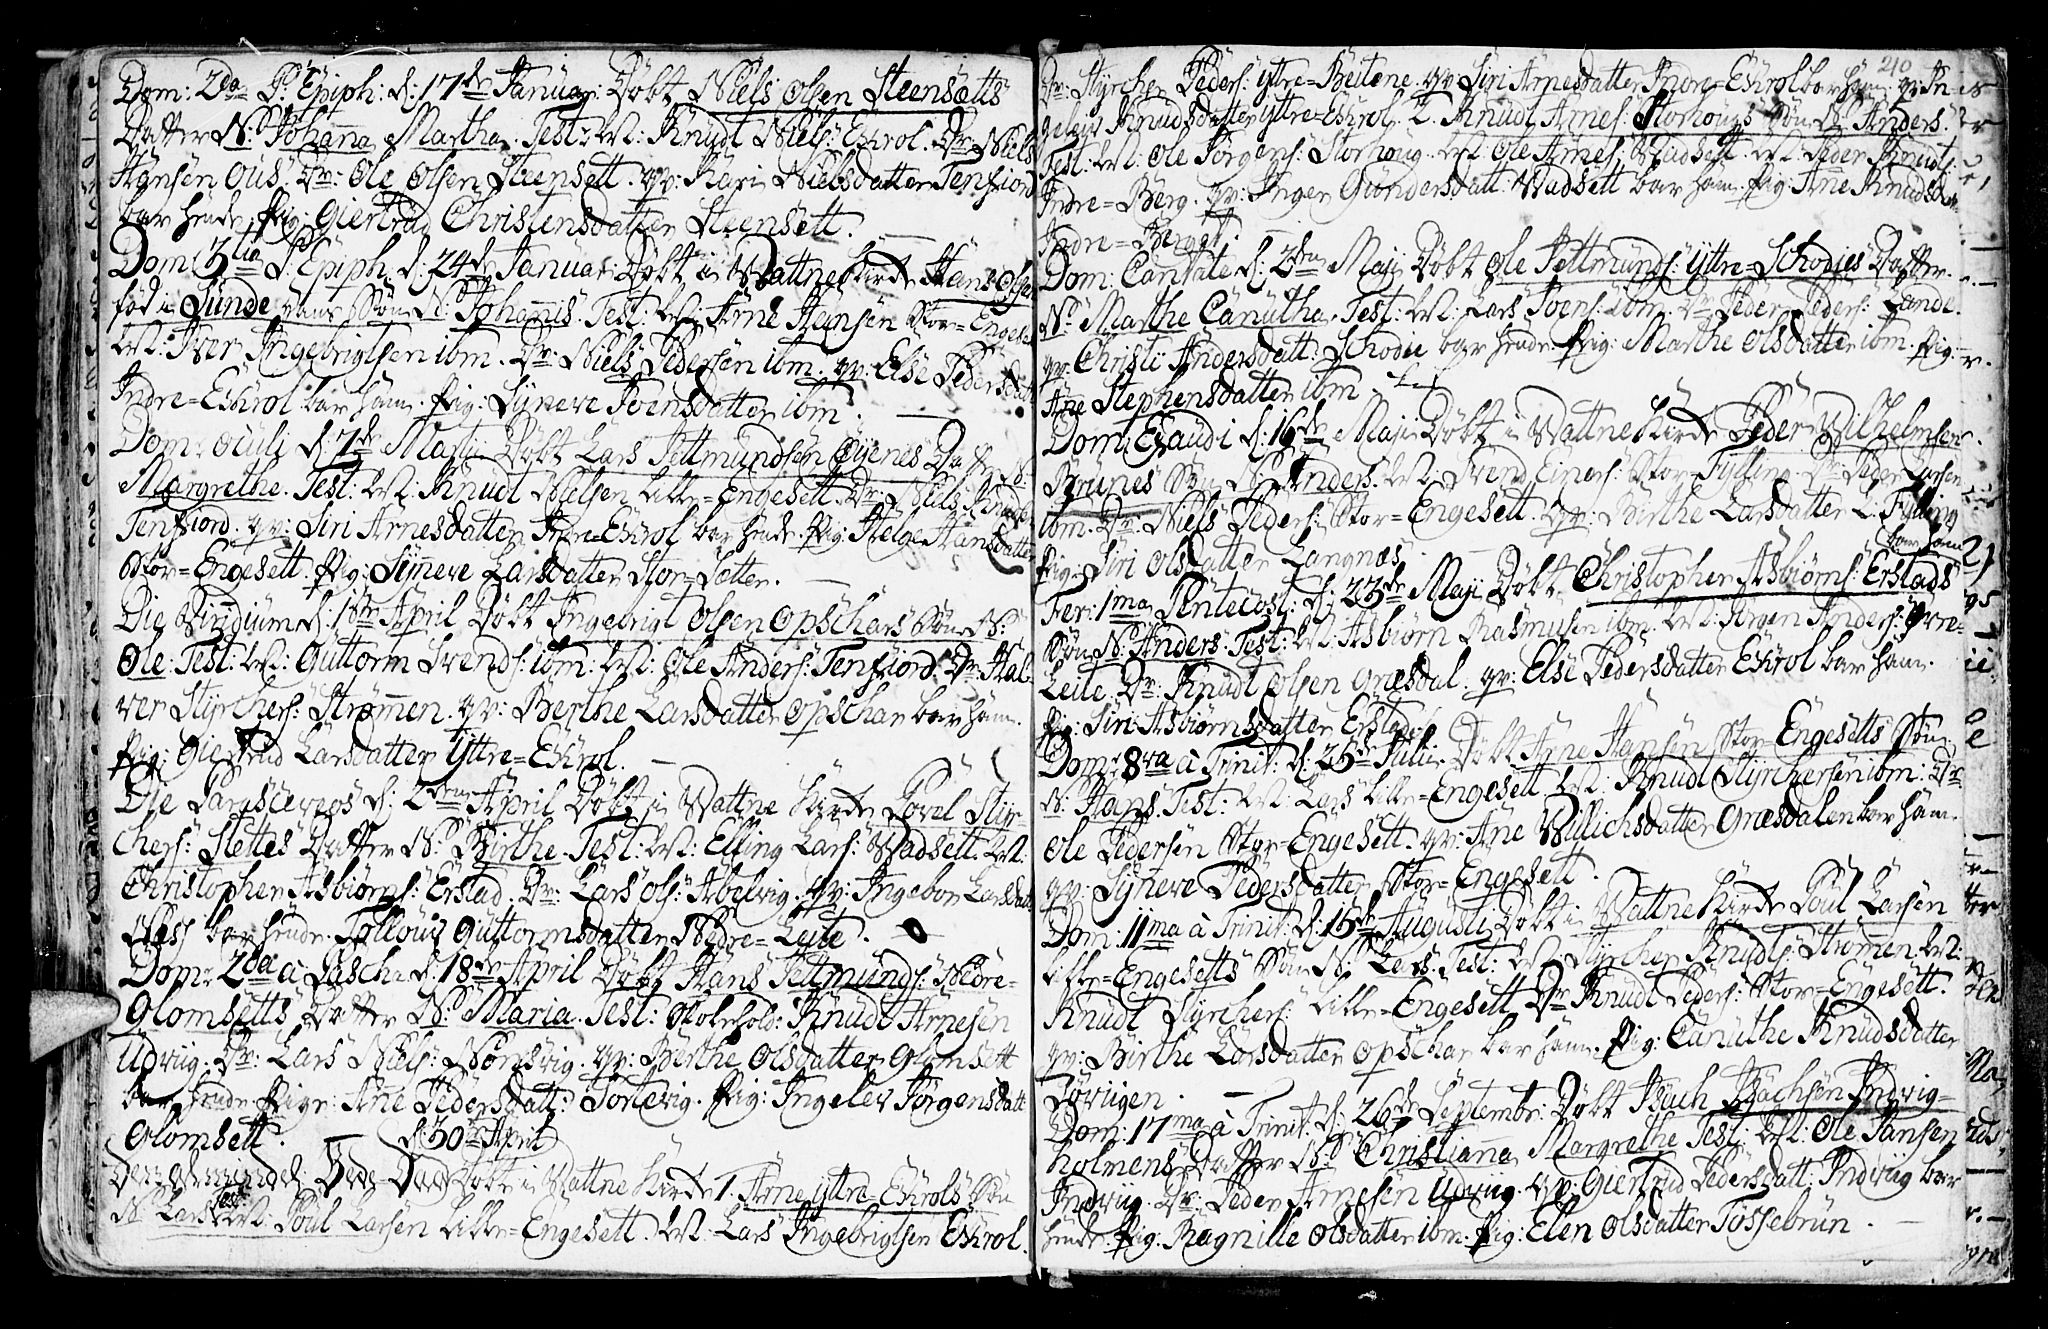 Dom: 2da P: Epiph: d: 17de Januar: Döbt Niels Olsen Steensetts
Datter N: Johanna Martha. Test: Wel: Knudt Niels: Exkrol. Dr: Niels
Hansen Ous. Dr: Ole Olsen Steensett. gv: Kari Nielsdatter Tenfiord
bar hende. Pig: Giertrud Christensdatter Steensett.
Dom: 3tia P: Epiph. d: 24de Januar: Döbt i Wattne Kirke Hans Olsen
fød i Sunde hans Søn N: Johannis. Test: Wel: Arne Hansen Stor=Engesett
Wel: Iver Ingebrigtsen ibm. Dr: Niels Pedersen ibm. gv: Else Pedersdatt:
Indre=Exkrol bar ham. Pig: Synneve Svensdatter ibm.
Dom: Oculi d: 7de Martii Döbt Lars Pettmundsen Öyenes Datter N:
Margrethe. Test: Wel: Knudt Nielsen Lille=Engesett. Dr: Niels
Tenfiord. gv: Siri Arnesdatter Indre=Exkrol bar hende. Pig: Helge Hansdatter
Stor=Engesett. Pig: Synneve Larsdatter Stor=Sætter.
Die Viridium d: 1ste April Döbt Ingebrigt Olsen Opschars Søn N:
Ole. Test: Wel: Guttorm Svends: ibm: Wel: Ole Anders: Tenfiord. Dr: Hal-
ver Styrchers: Strømmen. gv: Berthe Larsdatter Opschar bar ham.
Pig: Giertrud Larsdatter Yttre=Exkrol.
Die Parasceves d: 2den April Döbt i Wattne Kirke Povel Styr-
chers: Slettes Datter N: Birthe. Test: Wel: Elling Lars: Wadsett. Wel:
Christopher Asbiørns: Erstad. Dr: Lars Ols: Abelvig. gv: Ingebor Larsdatt:
Næss bar hende. Tollouv Guttormsdatter Nedre=Leite.
Dom: 2da à Pasch: d: 18de April Döbt Hans Pettmunds: Nedre=
Glomsetts Datter N: Maria. Test: Knudt Arnesen
Udvug. Dr: Lars Niels: Nørvsvig. gv: Berthe Olsdatter Glomsett
bar hende. Pige: Ane Pedersdatt: Tortevig. Pig: Ingelev Jørgensdatt:
Glomsett. d: 30te April
Döbt i Wattne Kirke 1. Arne Yttre=Exkrols Søn
N: Lars. Test: Wel: Poul Larsen Lille=Engesett. Wel: Lars Ingebrigtsen Exkrol.
210
Dr: Styrcher Peders: Yttre=Beitene. gv: Siri Arnesdatter Indre=Exkrol bar ham. gv: In-
geleiv Knudsdatter Yttre=Exkrol. 2. Knudt Arnes: Storhougs Søn N: Anders.
Test: Wel: Ole Jørgens: Storhoug. Wel: Ole Arnes: Wadsett. Wel: Peder Knuds:
Indre=Berg. gv: Inger Gundersdatt: Wadsett bar ham. Pig: Ane Knudsdatter
Indre=Berget.
Dom: Cantate d: 2den Maji Döbt Ole Pettmunds: Yttre=Schodjes Datter.
N: Marthe Canutha. Test: Wel: Lars Svens: ibm. Dr: Peder Peders: Lande.
gv: Christi Andersdatt: Schodje bar hende. Pig: Marthe Olsdatter ibm. Pig:
Ane Stephensdatter ibm.
Dom: Exaudi d: 16de Maji Döbt i Wattne Kirke Peder Wilhelmsen
Brunes Søn N: Anders. Wel: Svend Einers: Stor=Fylling. Dr: Peder Larsen
ibm. Dr: Niels Peders: Stor=Engesett. gv: Birthe Larsdatter L. Fylling
bar ham
Pig: Siri Olsdatter Langnæs.
Fer: 1ma Pentecost: d: 23de Maji Döbt Christopher Asbiørns: Erstads
Søn N: Anders. Test: Wel: Asbiørn Rasmusen ibm. Wel: Jørgen Anders: Øvre=
Leite. Dr: Knudt Olsen Græsdal. gv: Else Pedersdatter Exkrol bar ham.
Pig: Siri Asbiørnsdatter Erstad.
Dom: 8va à Trinit: d: 25de Julii Döbt Arne Hansen Stor=Engesetts Søn.
N: Hans. Test: Wel: Lars Lille=Engesett. Wel: Knudt Styrchersen ibm: Dr:
Ole Pedersen Stor=Engesett. gv: Ane Willichsdatter Græsdalen bar ham.
gv: Synneve Pedersdatter Stor=Engesett.
Dom: 11ma à Trinit: d: 15de Augusti Döbt i Wattne Kirke Poul Larsen
Lille=Engesetts Søn N: Lars. Test: Wel: Styrcher Knudts: Strømmen. Wel:
Knudt Styrchers: Lille=Engesett. Dr: Knudt Peders: Stor=Engesett.
gv: Birthe Larsdatter Opschar bar ham. Pig: Canuthe Knudsdatter
Løvügen.
Dom: 17ma à Trinit: d: 26de Septembr: Döbt Isach Isachsen Indvig=
holmens Datter N: Christianna Margrethe. Test: Wel: Ole Hansen
Indvig. Dr: Peder Arnesen Udvug. gv: Giertrud Pedersdatt: Indviig bar
hende. Pig: Ragnille Olsdatter ibm. Pig: Elen Olsdatter Tøssebrün.